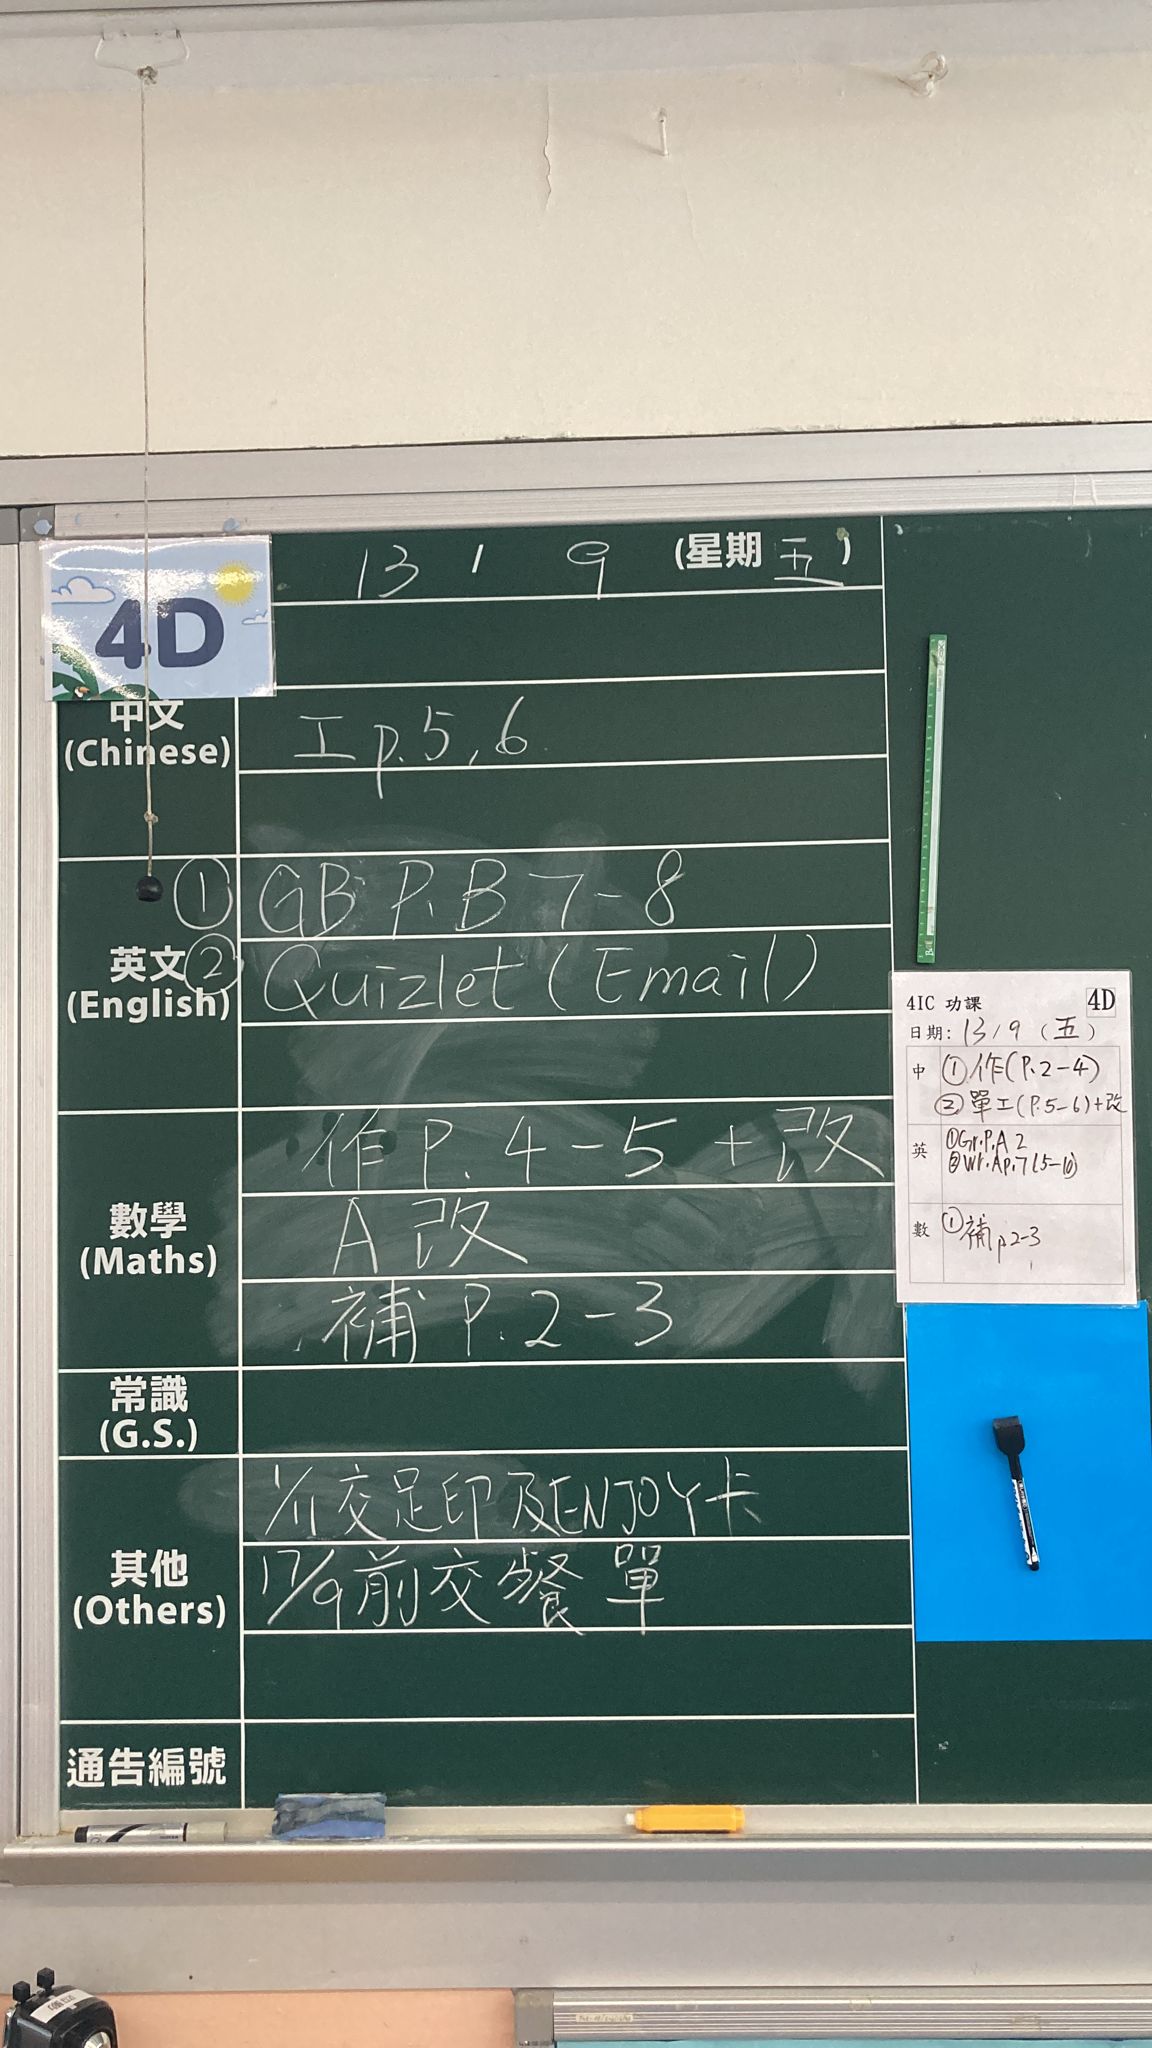 4D
13 / 9 (星期五)
中文
(Chinese)
工 p.5,6
英文
(English)
① GB P.B 7-8
② Quizlet (Email)
數學
(Maths)
作 P.4-5 + 改
A 改
補 P.2-3
常識
(G.S.)
其他
(Others)
交足印及ENJOY卡
17/9前交餐單
通告編號
4IC 功課 4D
日期: 13/9 (五)
中 ①作(P.2-4)
②單工(P.5-6)+改
英 ①Gr.P.A 2
②Wr.Ap.7(5-10)
數 ①補p2-3